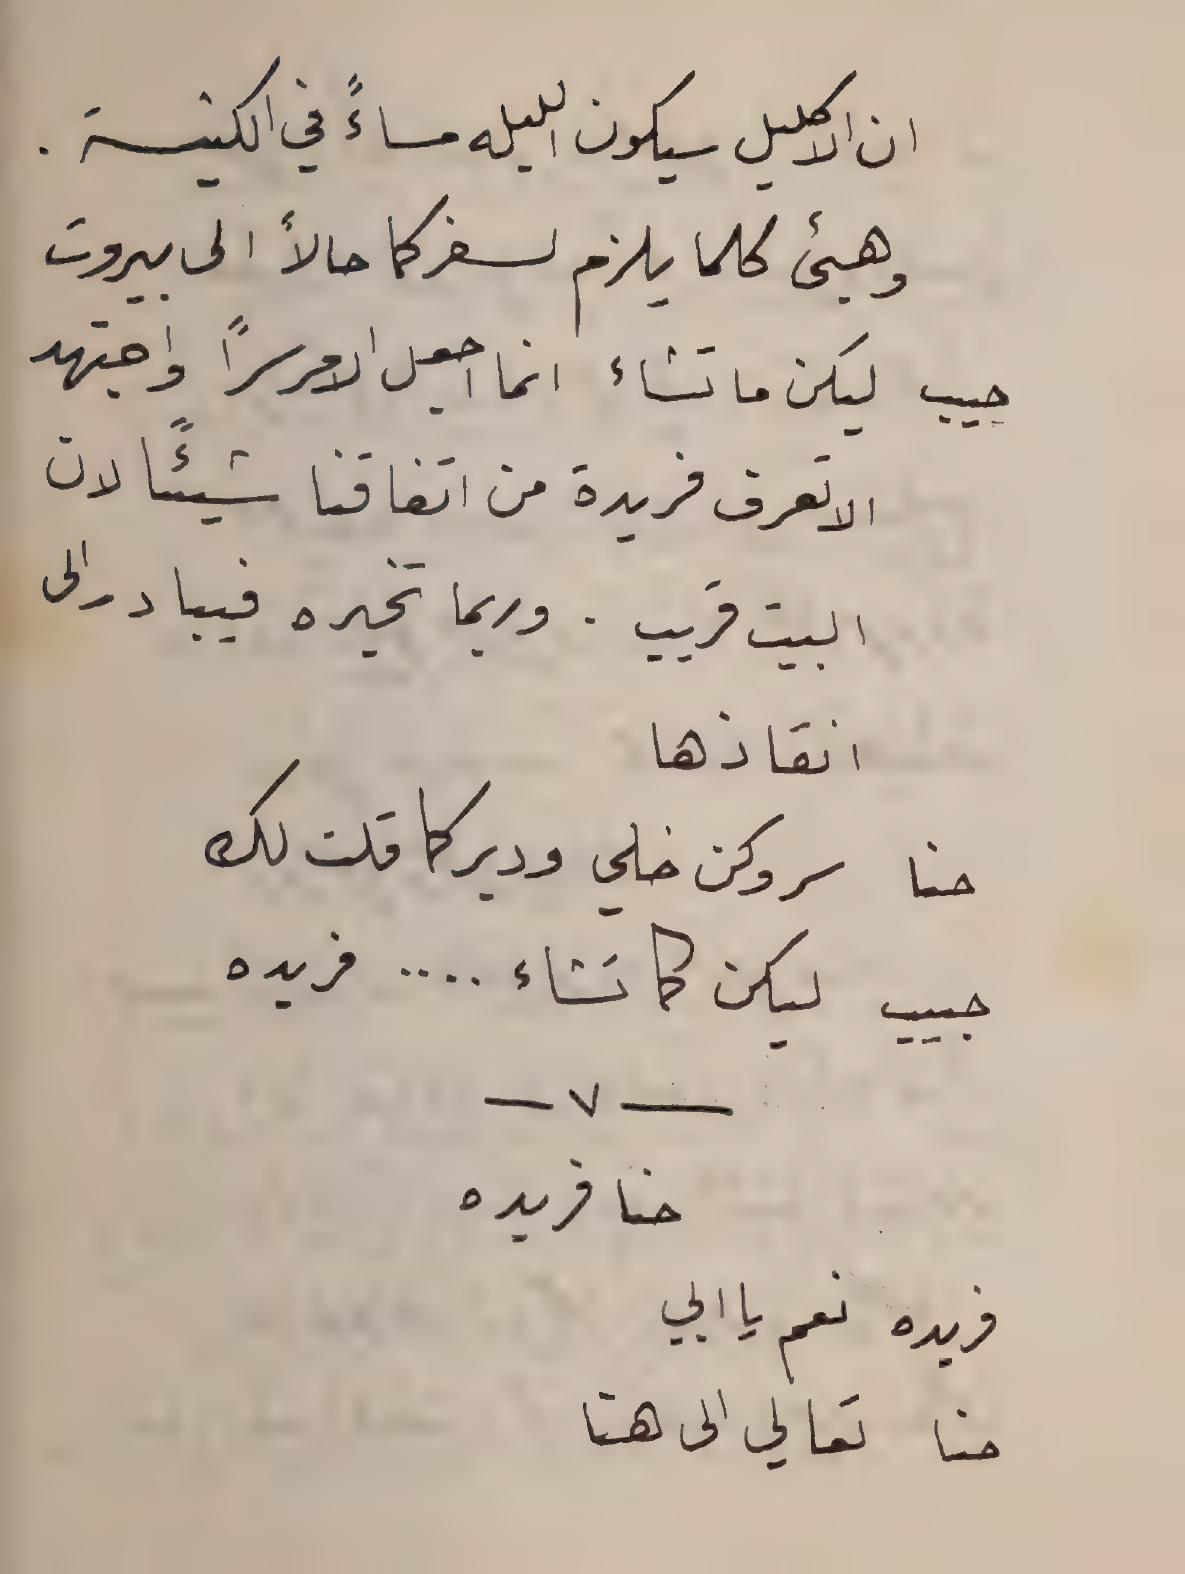 ان الاكليل سيكون الليله مساءً في الكنيسة .
وهيئ كلما يلزم لسفركما حالاً الى بيروت
حبيب ليكن ما تشاء انما اجعل الامر سراً واجتهد
الا تعرف فريدة من اتفاقنا شيئًا لان
البيت قريب . وربما تخبره فيبادر الى
انقاذها
حنا سر وكن خلي ودبر كما قلت لك
حبيب ليكن كما تشاء .... فريده
— ٧ —
حنا فريده
فريده نعم يا ابي
حنا تعالي الى هنا